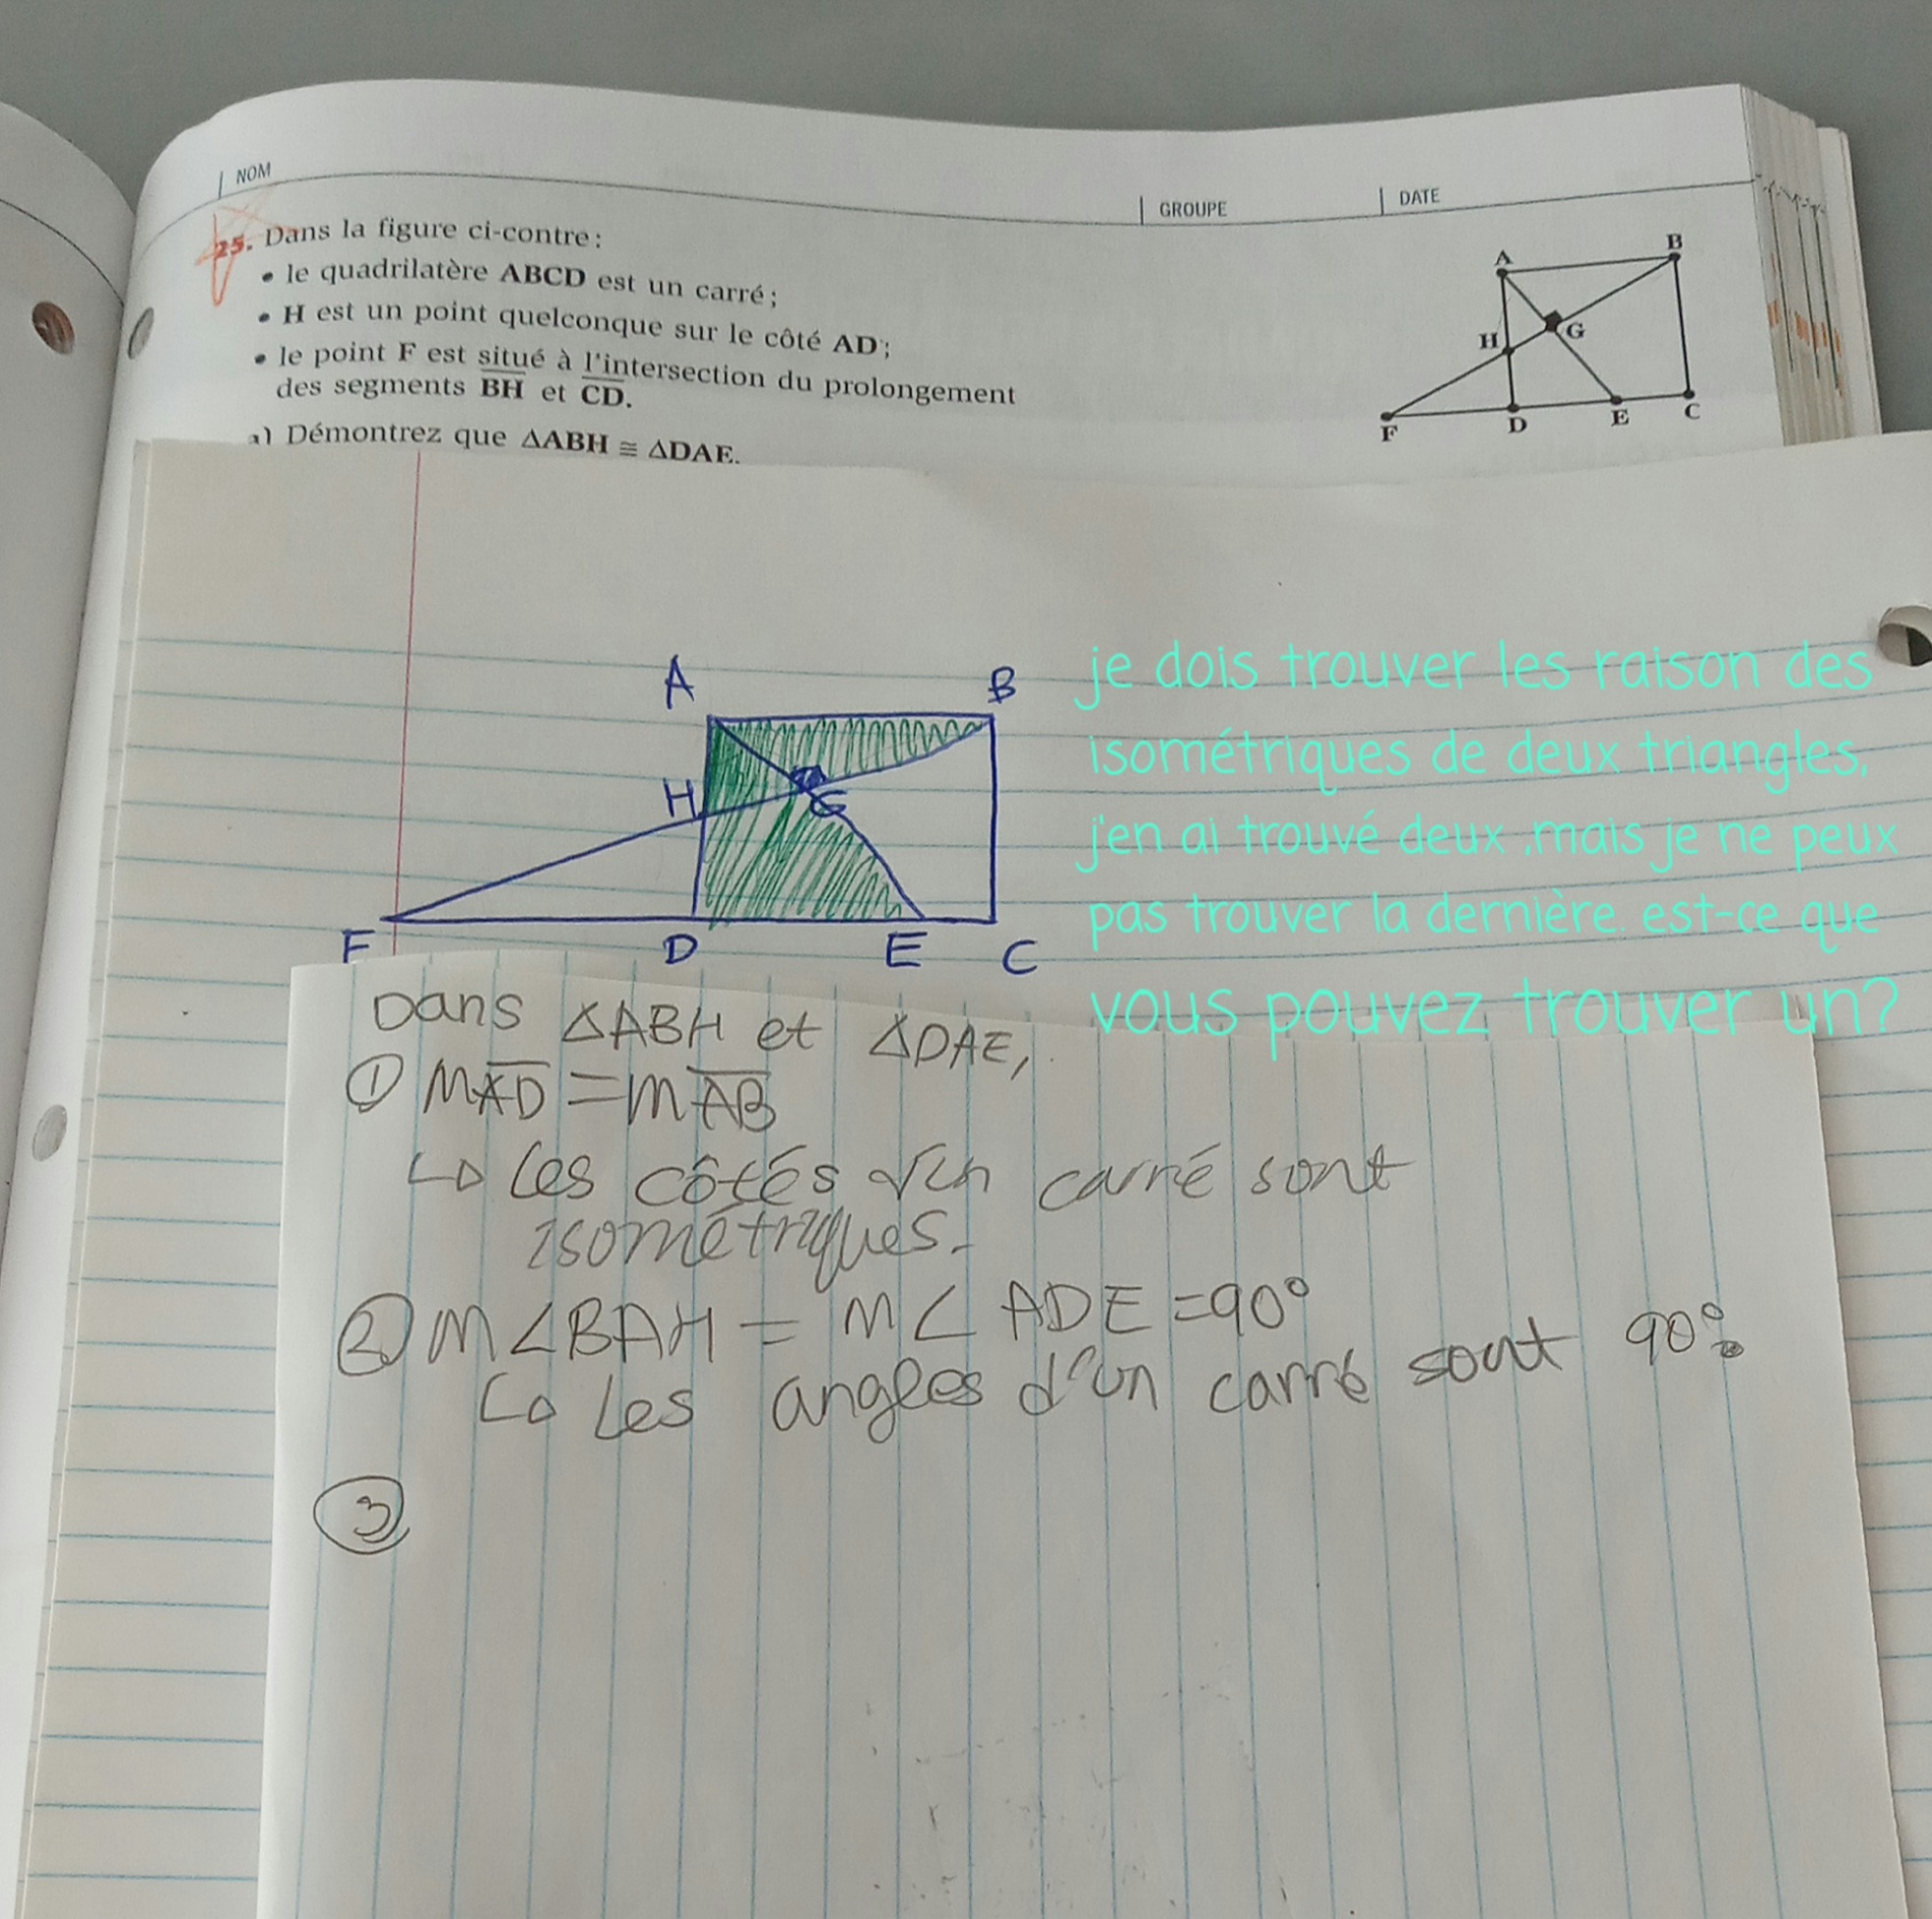 NOM
GROUPE
DATE
25. Dans la figure ci-contre :
• le quadrilatère ABCD est un carré ;
• H est un point quelconque sur le côté AD ;
• le point F est situé à l'intersection du prolongement
des segments BH et CD.
a) Démontrez que ΔABH ≅ ΔDAE.
A
B
H
G
F
D
E
C
A
B
H
G
F
D
E
C
je dois trouver les raison des
isométriques de deux triangles,
j'en ai trouvé deux ,mais je ne peux
pas trouver la dernière. est-ce que
vous pouvez trouver un?
Dans ΔABH et ΔDAE,
① mAD = mAB
↳ Les côtés d'un carré sont
isométriques.
② m∠BAH = m∠ADE = 90°
↳ Les angles d'un carré sont 90°.
③